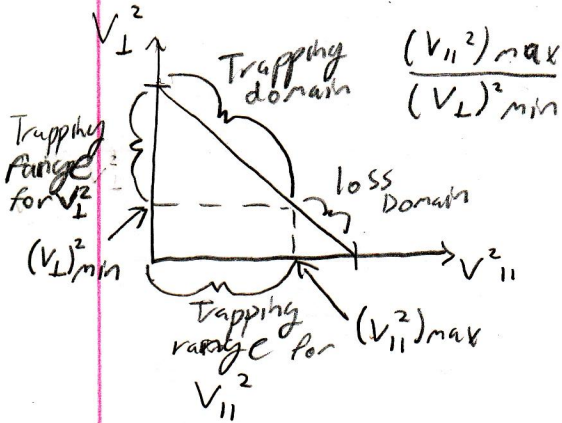 V⊥²
Trapping
domain
(V∥²)max
(V⊥)²min
Trapping
range
for V⊥²
loss
Domain
(V⊥)²min
V²∥
Trapping
range for
V∥²
(V∥²)max